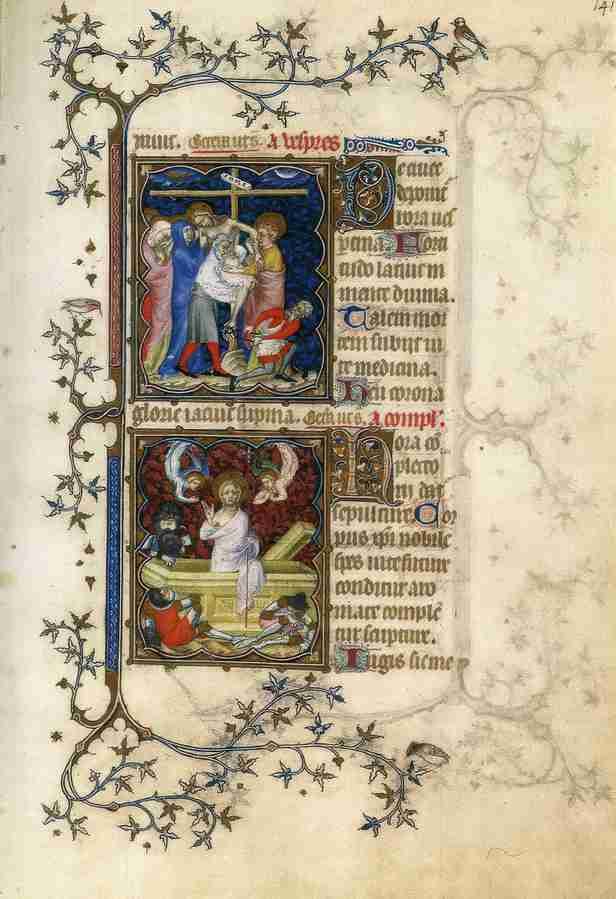 141
A vespres
De cruce
deponit
hora ves
ptina Forti
tudo latuit in
mente divina.
Talem mor
tem subijt vi
te medicina.
Heu corona
glorie iacuit supina. A compl'.
Hora cō
pleto
rij dat
sepulture. Cor
pus xp̄i nobile
spes vite future
conditur aro
mate complē
tur scripture.
Iugis sic me